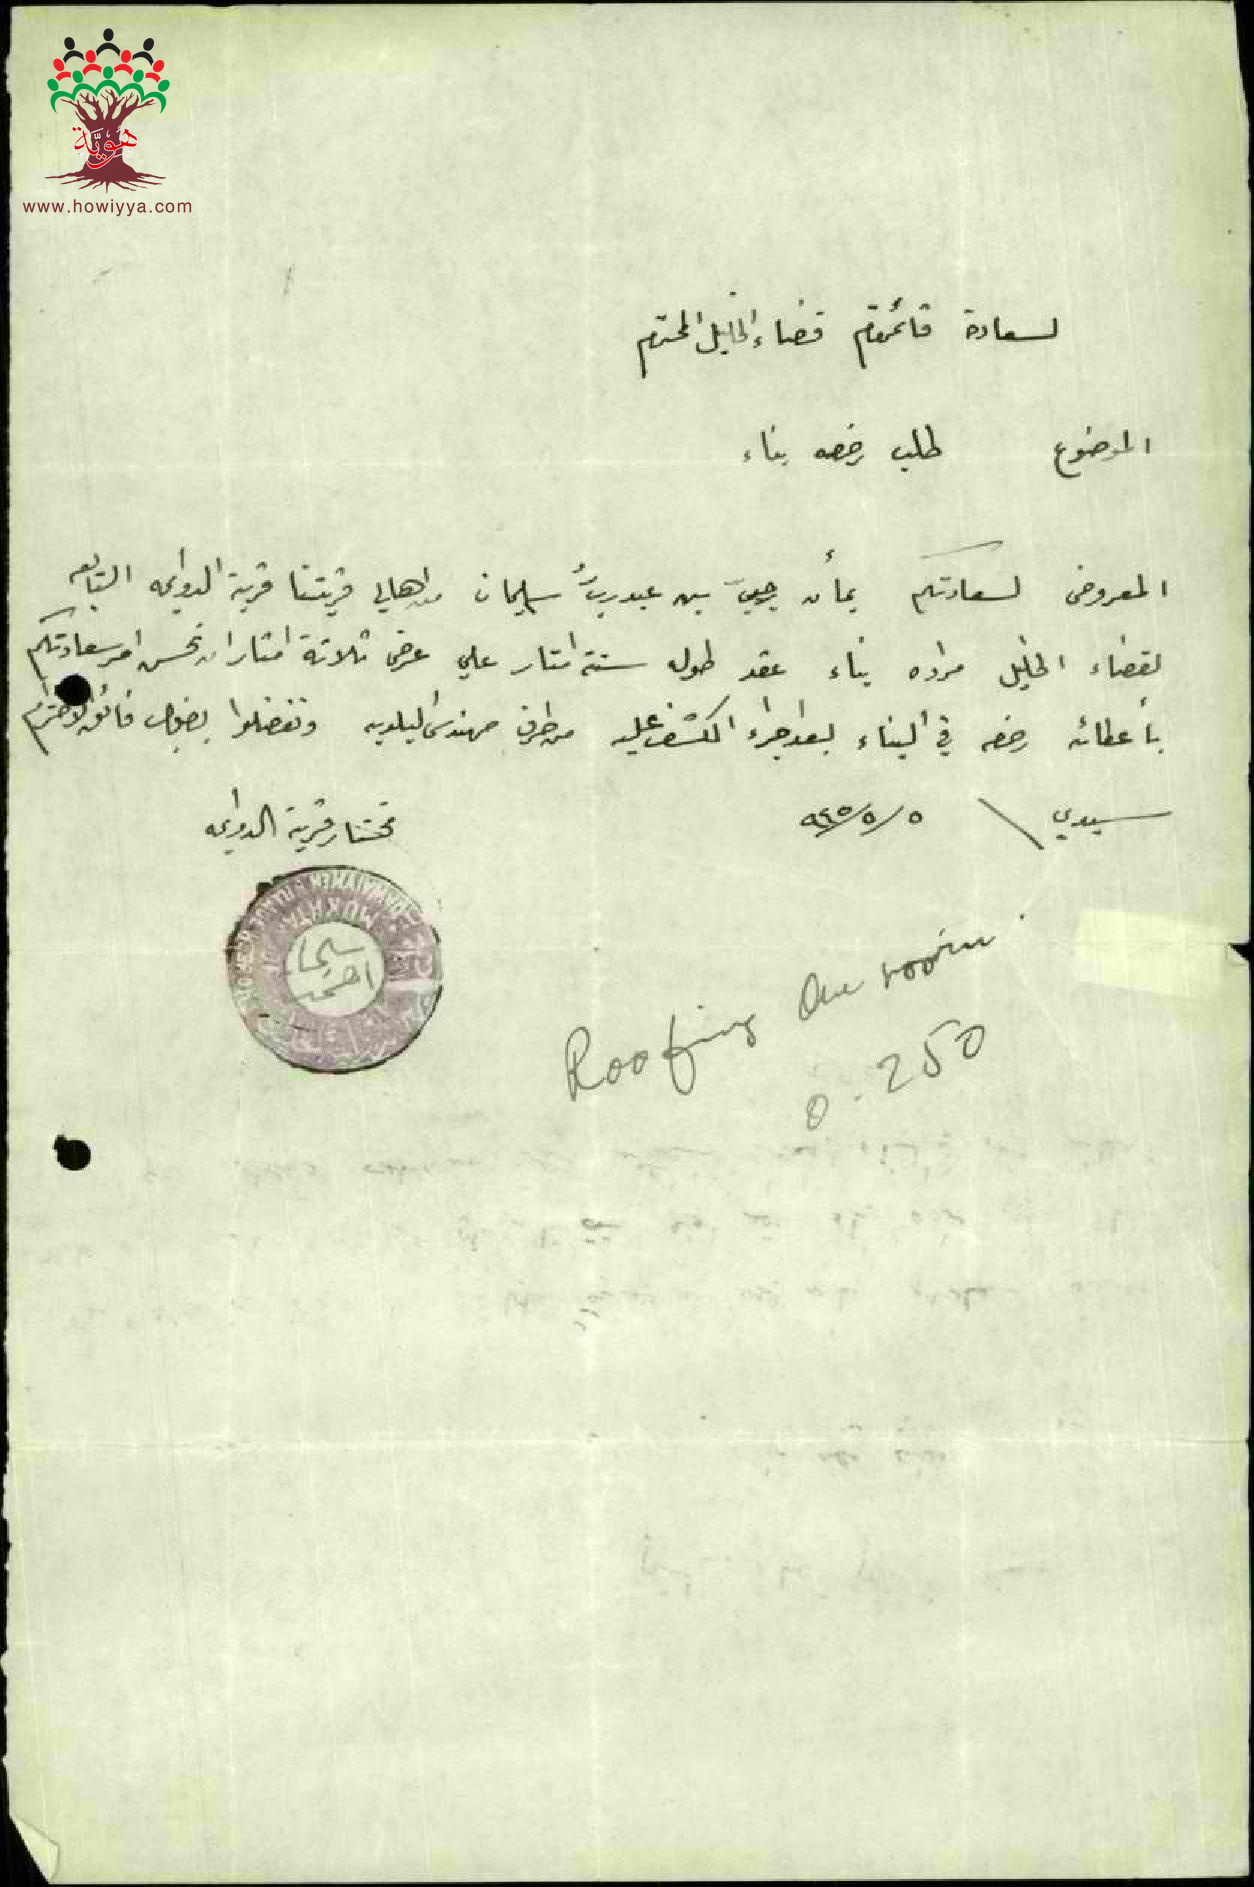 هوية
www.howiyya.com
لسعادة قائمقام قضاء الخليل المحترم
الموضوع طلب رخصه بناء
المعروض لسعادتكم بمأن بن عبدربه سليمان من اهالي قريتنا قرية الدوايمه التابعه
لقضاء الخليل مراده بناء عقد طوله ستة امتار علي عرض ثلاثة امتار ان تحسن امر سعادتكم
بأعطائه رخصه في البناء بعد اجراء الكشف عليه من طرف مهندس البلديه وتفضلوا بقبول فائق الاحترام
سيدي ٥/٥/٩٤٥
مختار قرية الدوايمه
DAWAIYMEH VILLAGE HEBRON
MUKHTAR
سليمان
احمد
Roofing One room
0.250